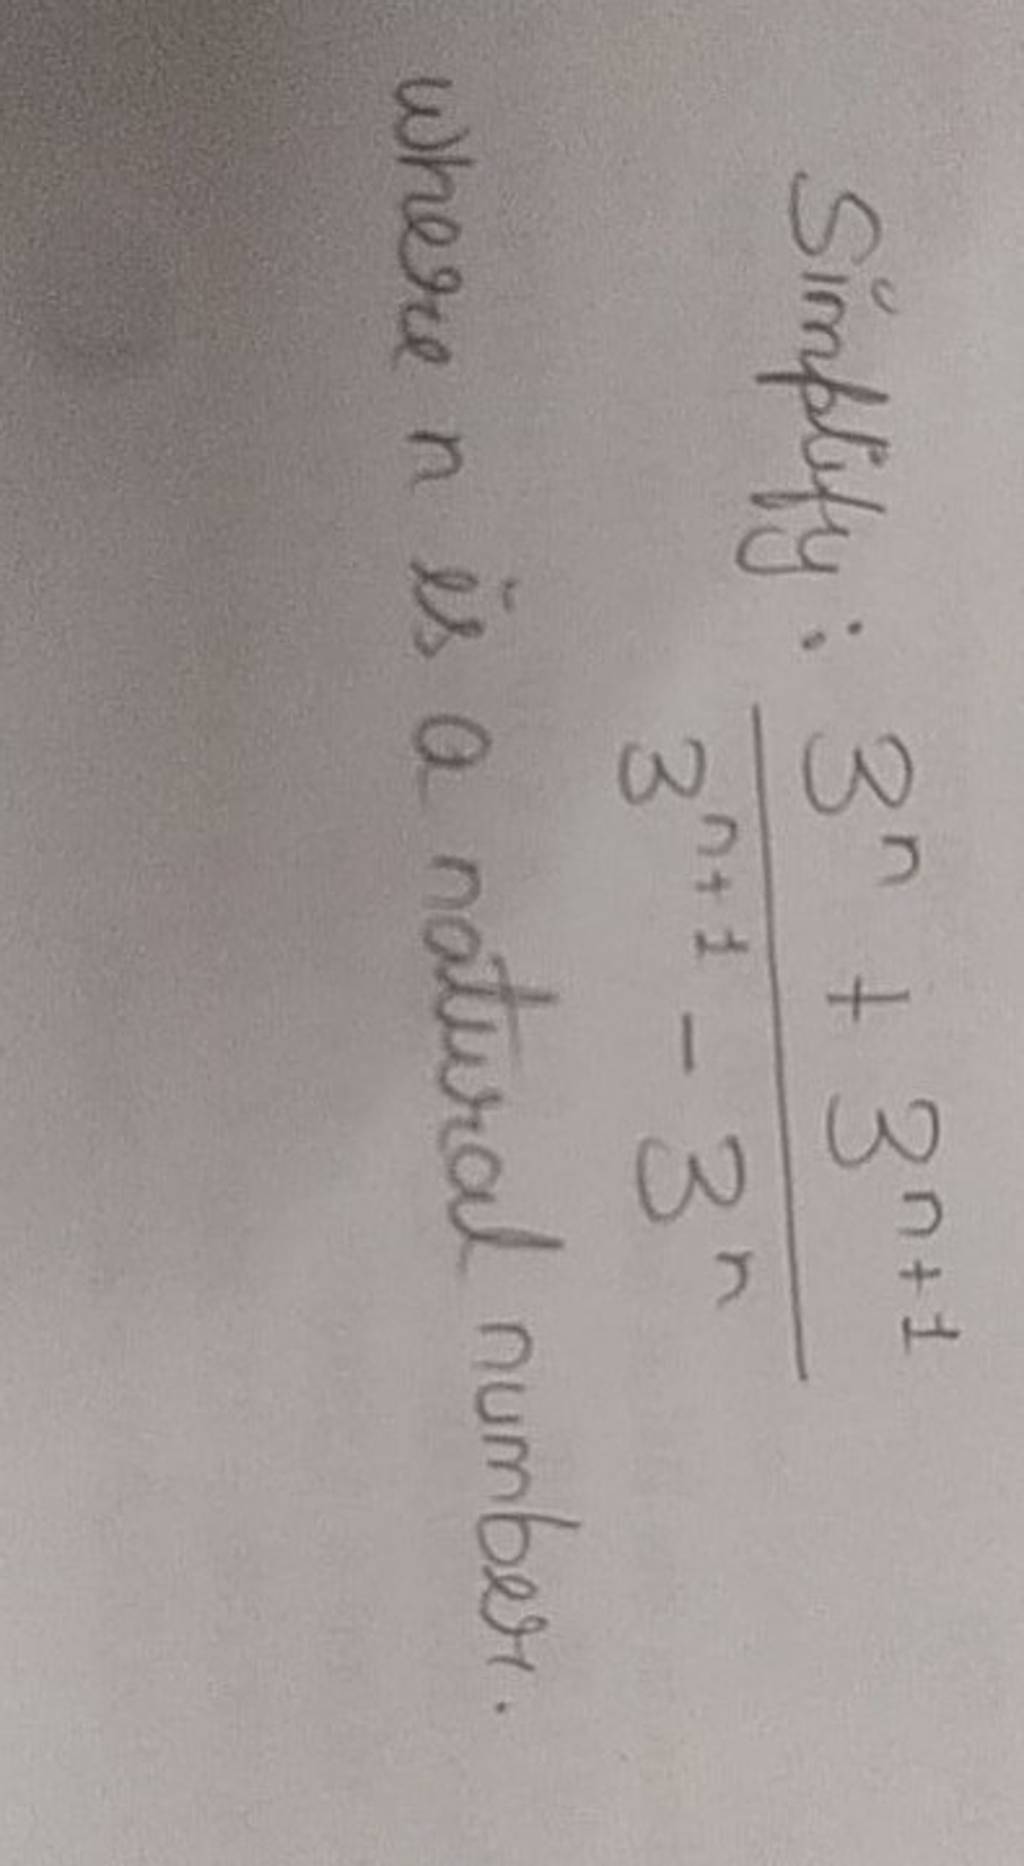 Simplify : 3ⁿ + 3ⁿ⁺¹
3ⁿ⁺¹ - 3ⁿ
where n is a natural number.